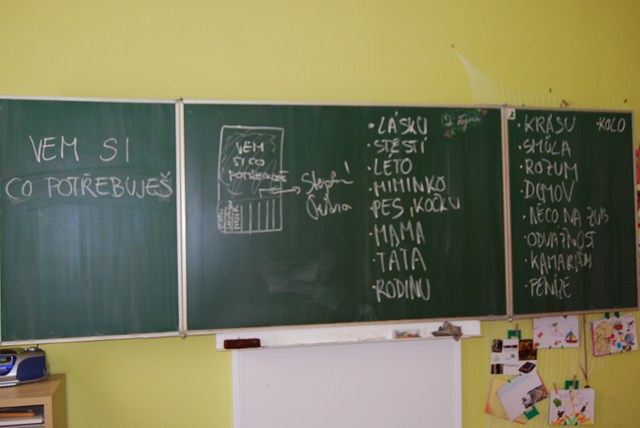 VEM SI
CO POTŘEBUJEŠ
VEM
SI CO
POTŘEBUJEŠ
• LÁSKU
• ŠTĚSTÍ
• LÉTO
• MIMINKO
PES, KOČKU
• MAMA
• TATA
RODINU
• KRÁSU
• KOLO
• SMŮLA
• ROZUM
• DOMOV
• NĚCO NA ZUB
• ODVÁŽNOST
• KAMARÁDA
• PENÍZE